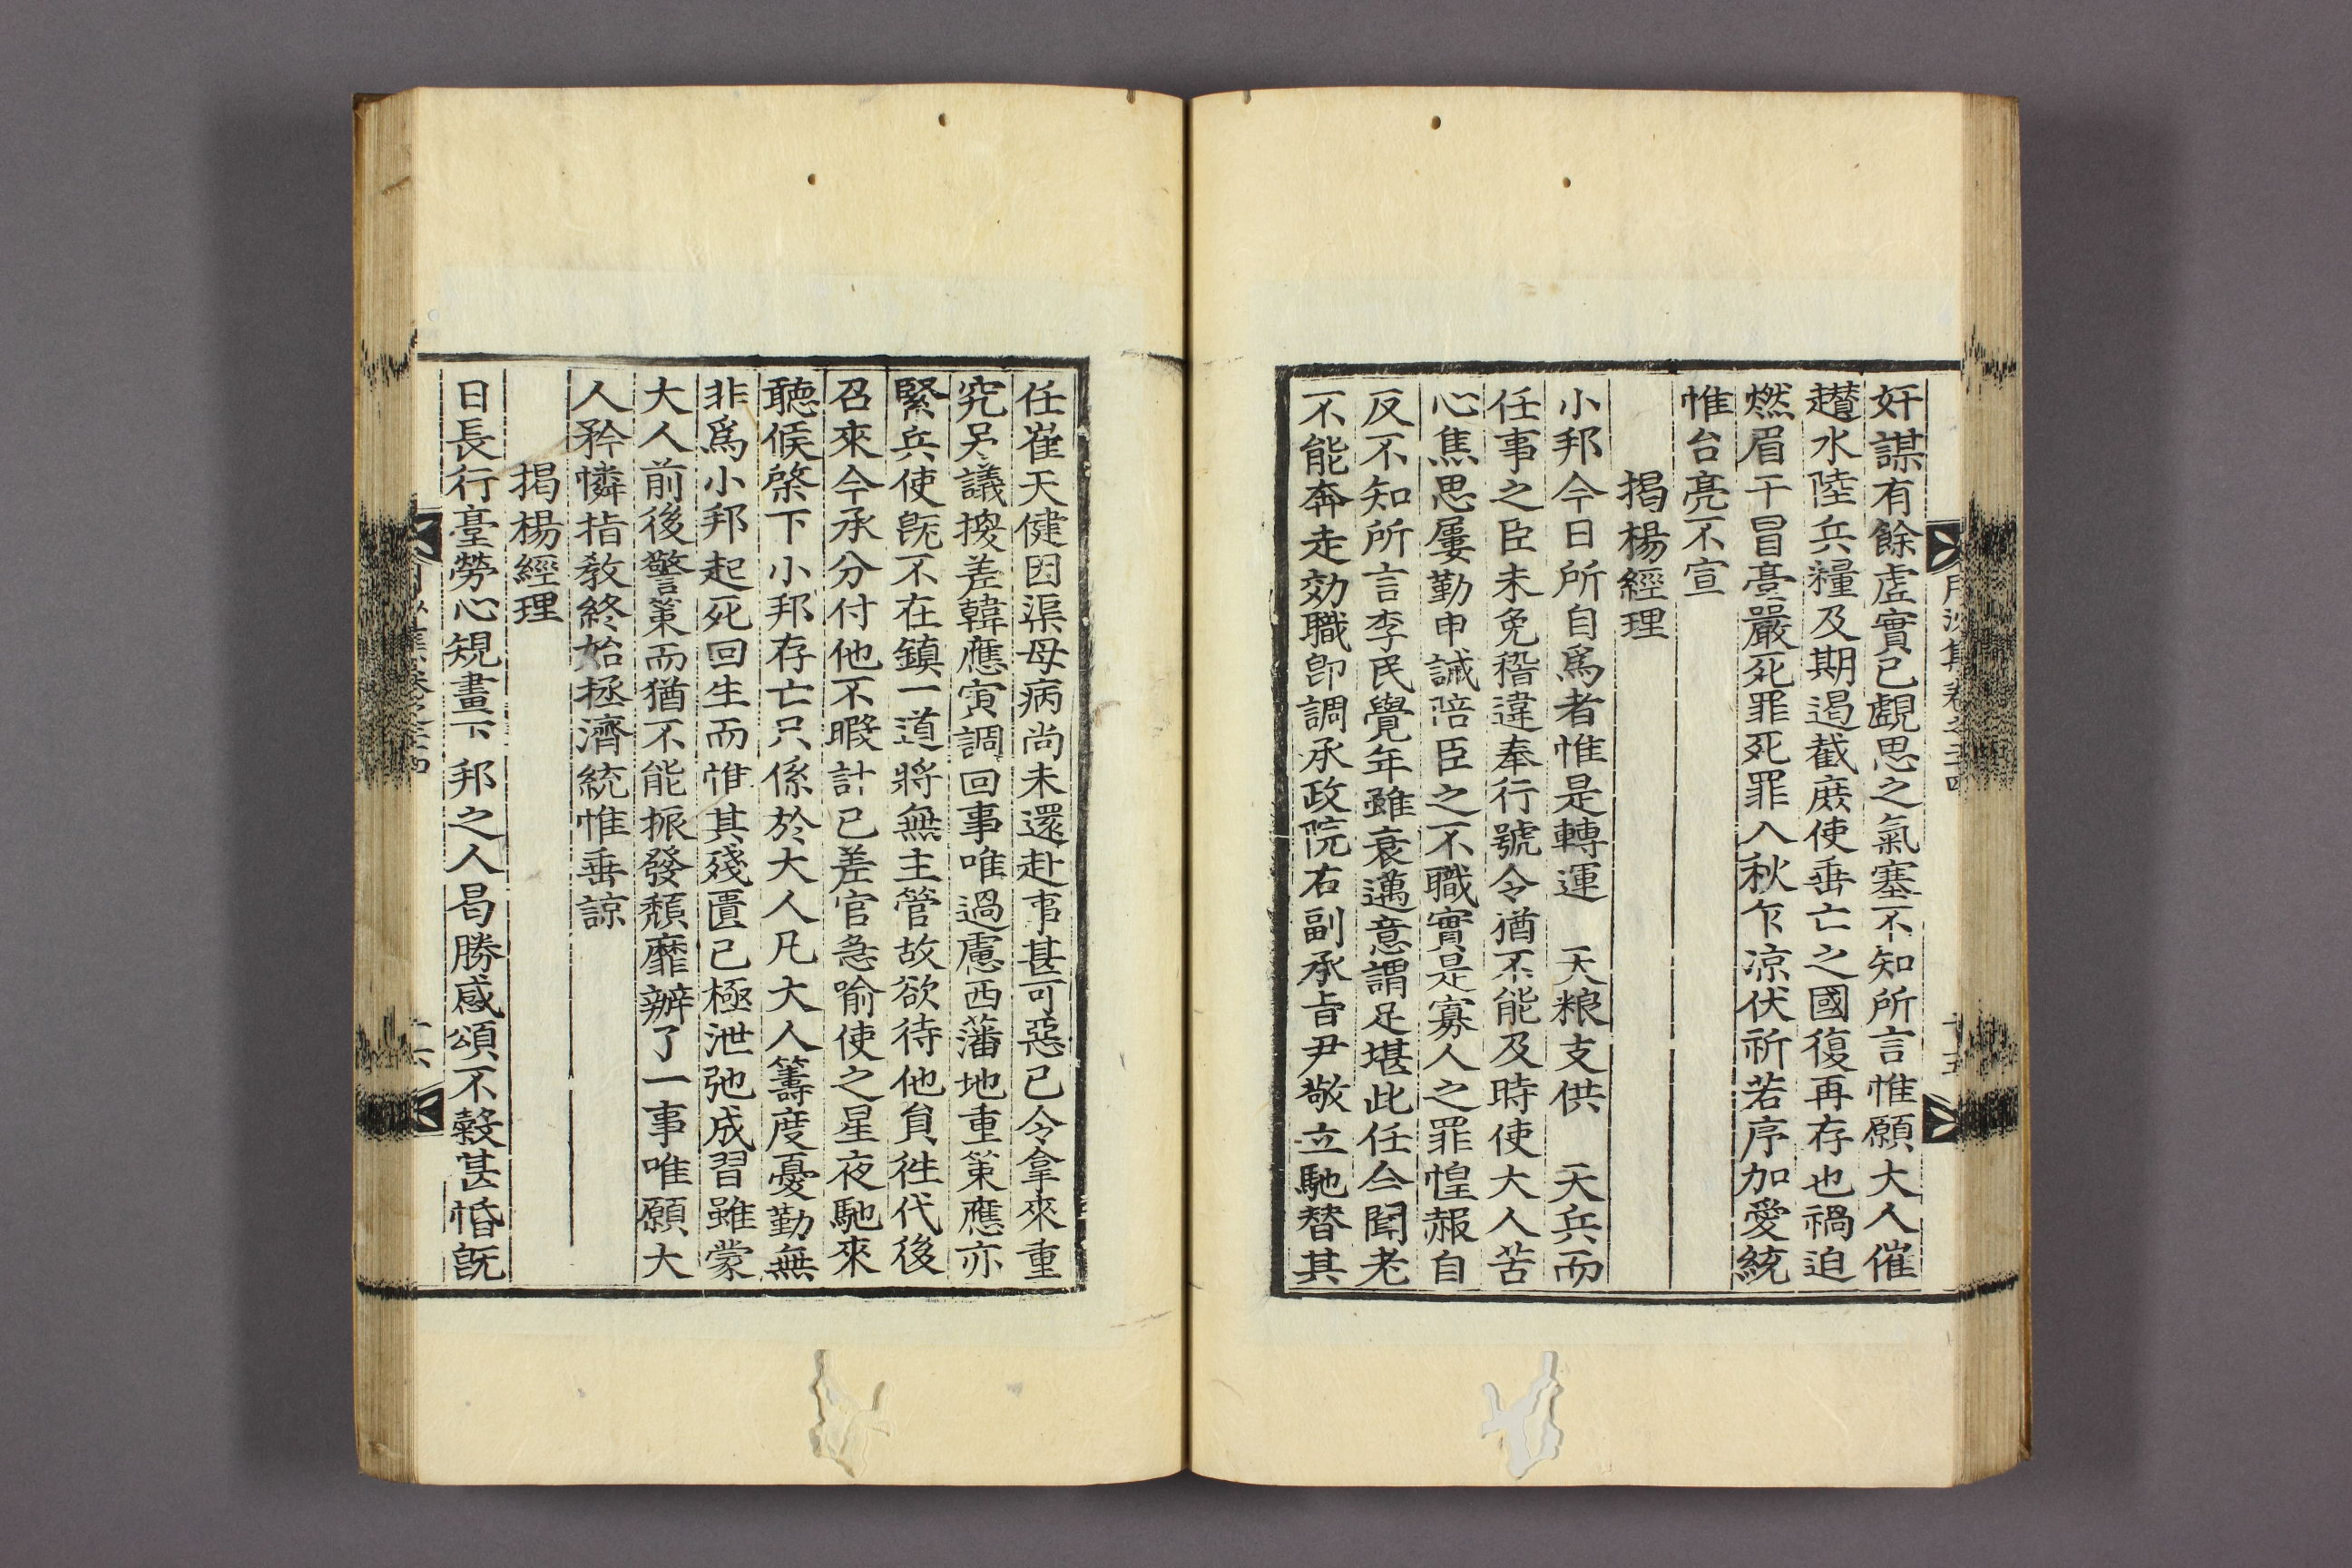 奸謀有餘虛實已覰思之氣塞不知所言惟願大人催
趲水陸兵糧及期遏截庶使垂亡之國復再存也禍迫
燃眉干冒臺嚴死罪死罪入秋乍凉伏祈若序加愛統
惟台亮不宣
揭楊經理
小邦今日所自爲者惟是轉運　天粮支供　天兵而
任事之臣未免稽違奉行號令猶不能及時使大人苦
心焦思屢勤申誡陪臣之不職實是寡人之罪惶赧自
反不知所言李民覺年雖衰邁意謂足堪此任今聞老
不能奔走効職卽調承政院右副承旨尹敬立馳替其
任崔天健因渠母病尚未還赴事甚可惡已令拿來重
究另議擬差韓應寅調回事唯過慮西藩地重策應亦
緊兵使旣不在鎭一道將無主管故欲待他員徃代後
召來今承分付他不暇計已差官急喻使之星夜馳來
聽候棨下小邦存亡只係於大人凡大人籌度憂勤無
非爲小邦起死回生而惟其殘匱已極泄弛成習雖蒙
大人前後警策而猶不能振發頹靡辦了一事唯願大
人矜憐指敎終始拯濟統惟垂諒
揭楊經理
日長行臺勞心規畫下　邦之人曷勝感頌不糓甚惛旣